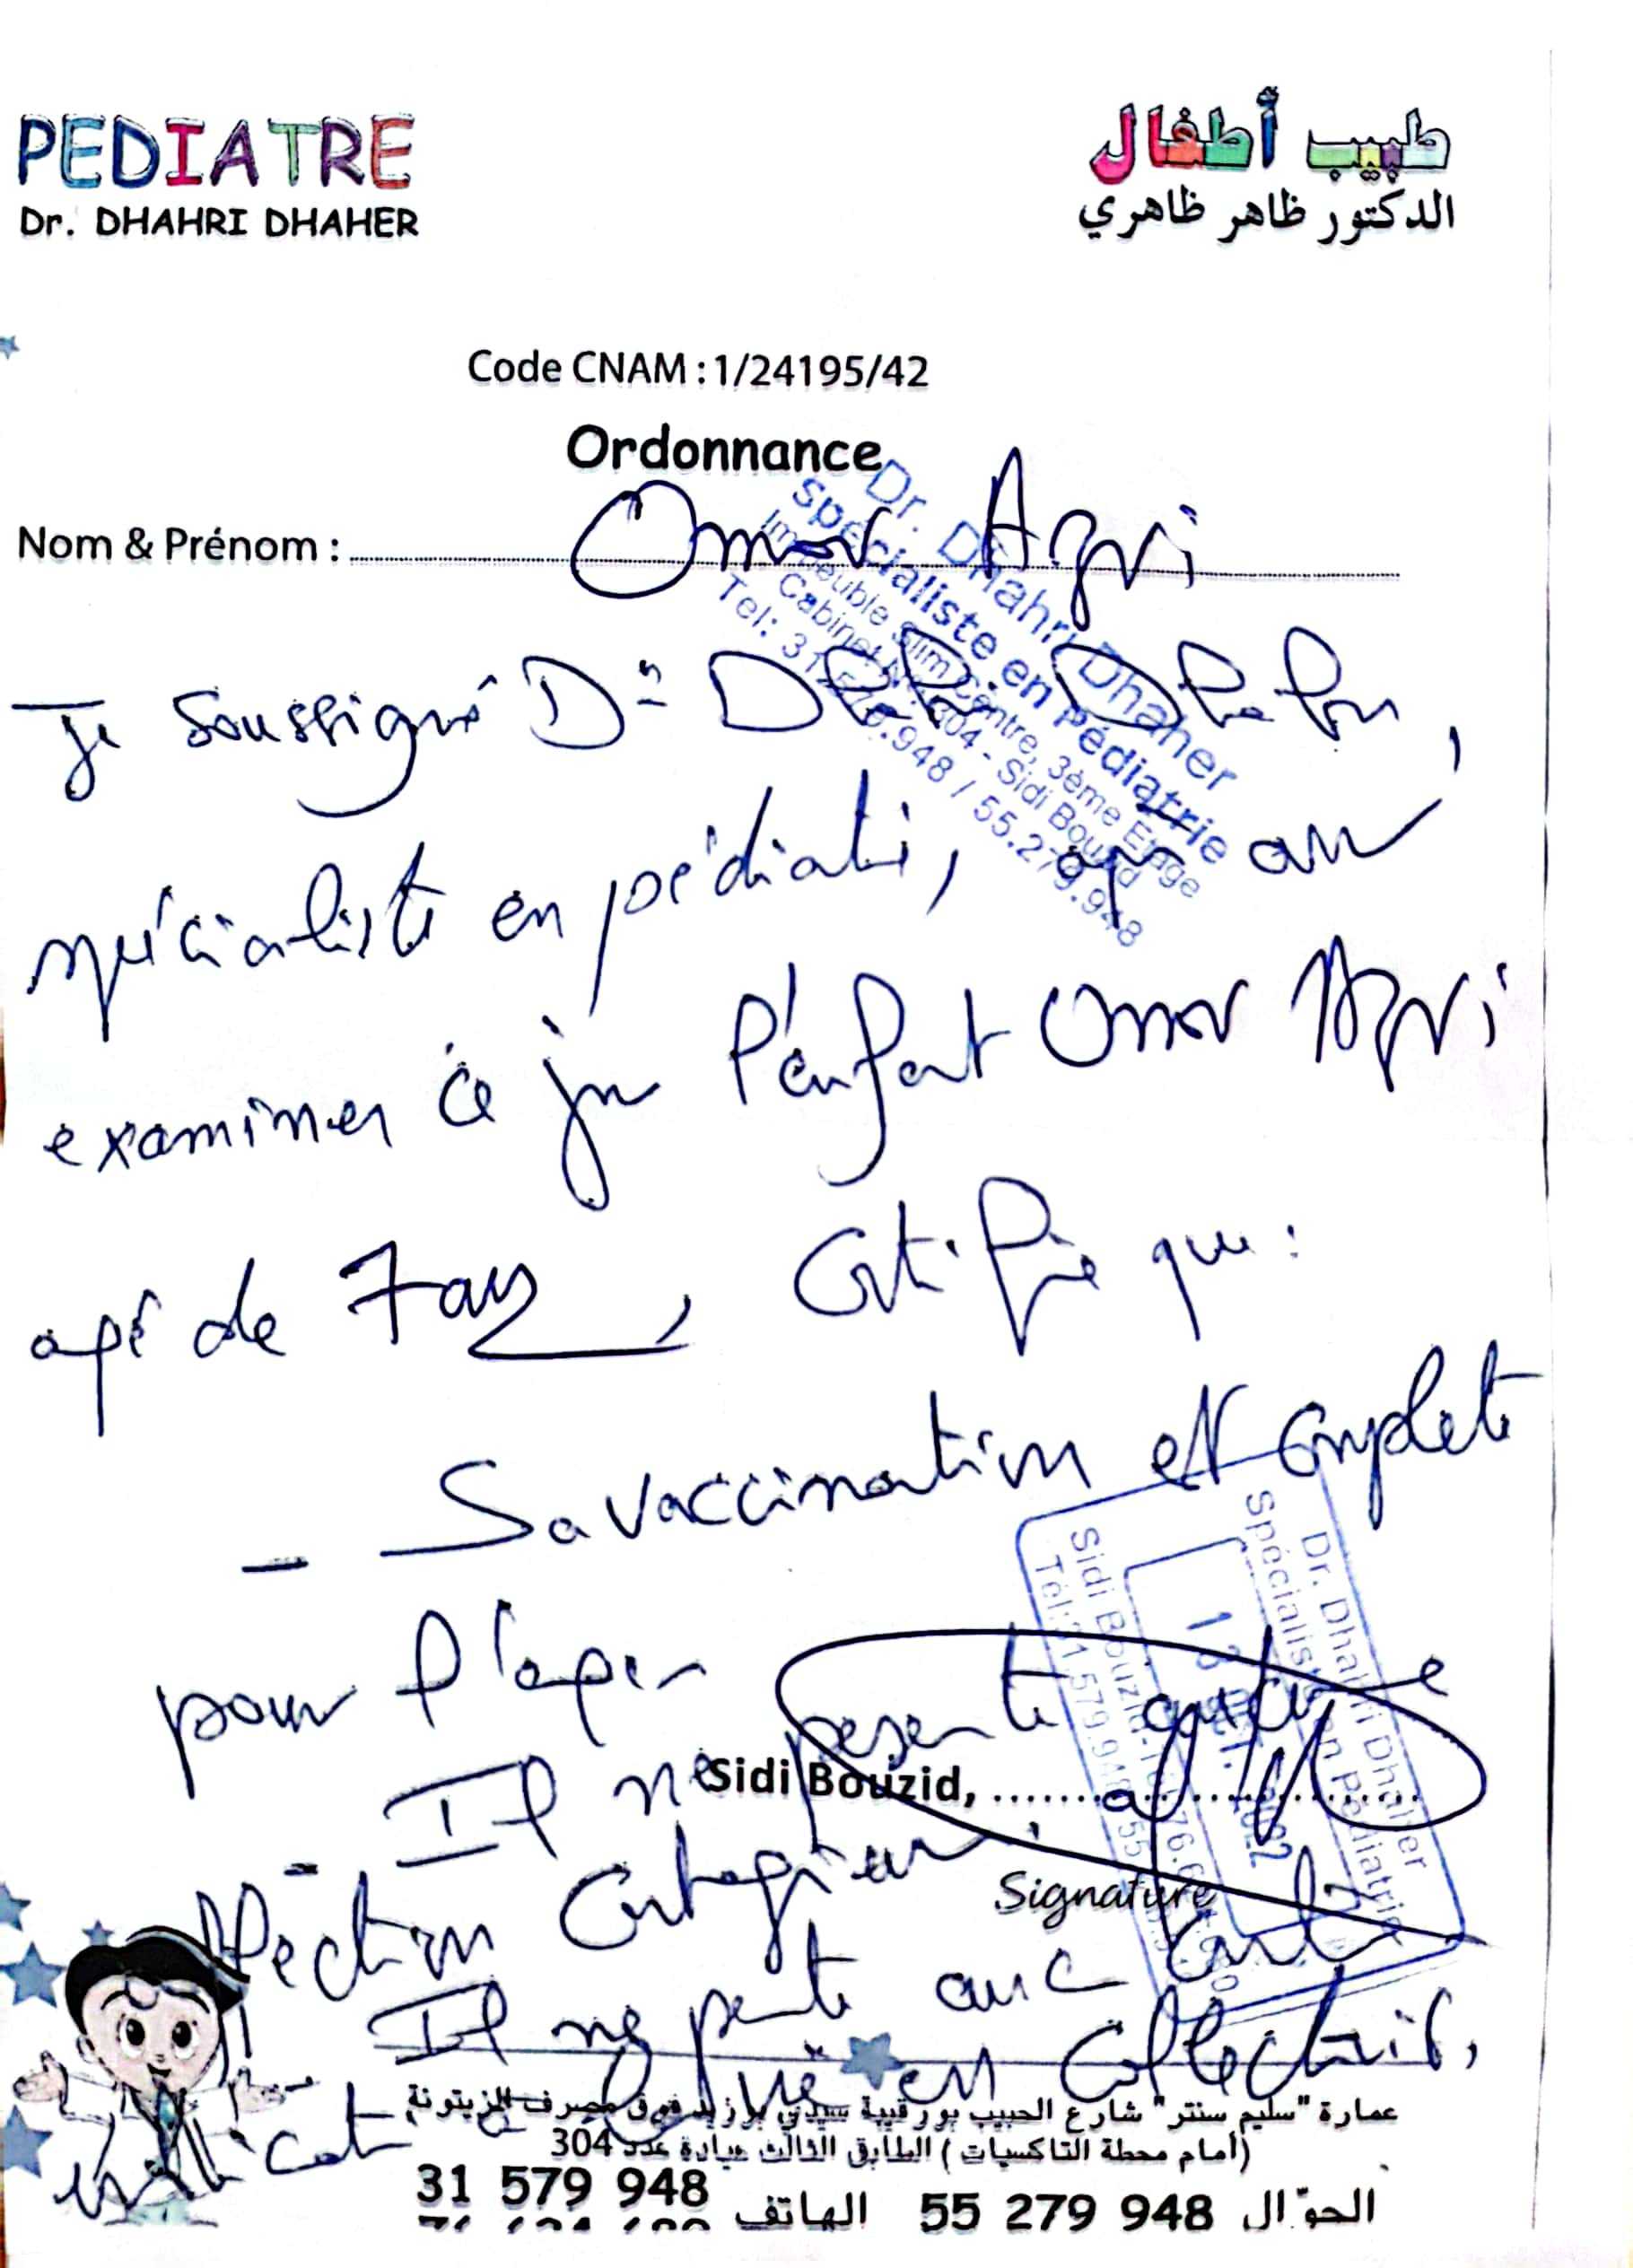 PEDIATRE
Dr. DHAHRI DHAHER
طبيب أطفال
الدكتور ظاهر ظاهري
Code CNAM : 1/24195/42
Ordonnance
Nom & Prénom : Omar Agri
Dr. Dhahri Dhaher
spécialiste en pédiatrie
Immeuble Slim Centre, 3ème Etage
Cabinet N° 304 - Sidi Bouzid
Tel: 31.579.948 / 55.279.948
Je soussigné Dr Dhahri Dhaher,
spécialiste en pédiatrie, après avoir
examiner ce jour l'enfant Omar Agri
agé de 7 ans, Certifie que :
- Sa vaccination est complete
pour l'age
- Il ne présente aucune
affection contagieuse
Il ne présente aucune contre
indication à la vie en collectivité.
Dr. Dhahri Dhaher
Spécialiste en Pédiatrie
2022
Sidi Bouzid
Sidi Bouzid, ..........
Signature
عمارة "سليم سنتر" شارع الحبيب بورقيبة سيدي بوزيد فوق مصرف الزيتونة
(أمام محطة التاكسيات) الطابق الثالث عيادة عدد 304
الجوّال 55 279 948 الهاتف 31 579 948